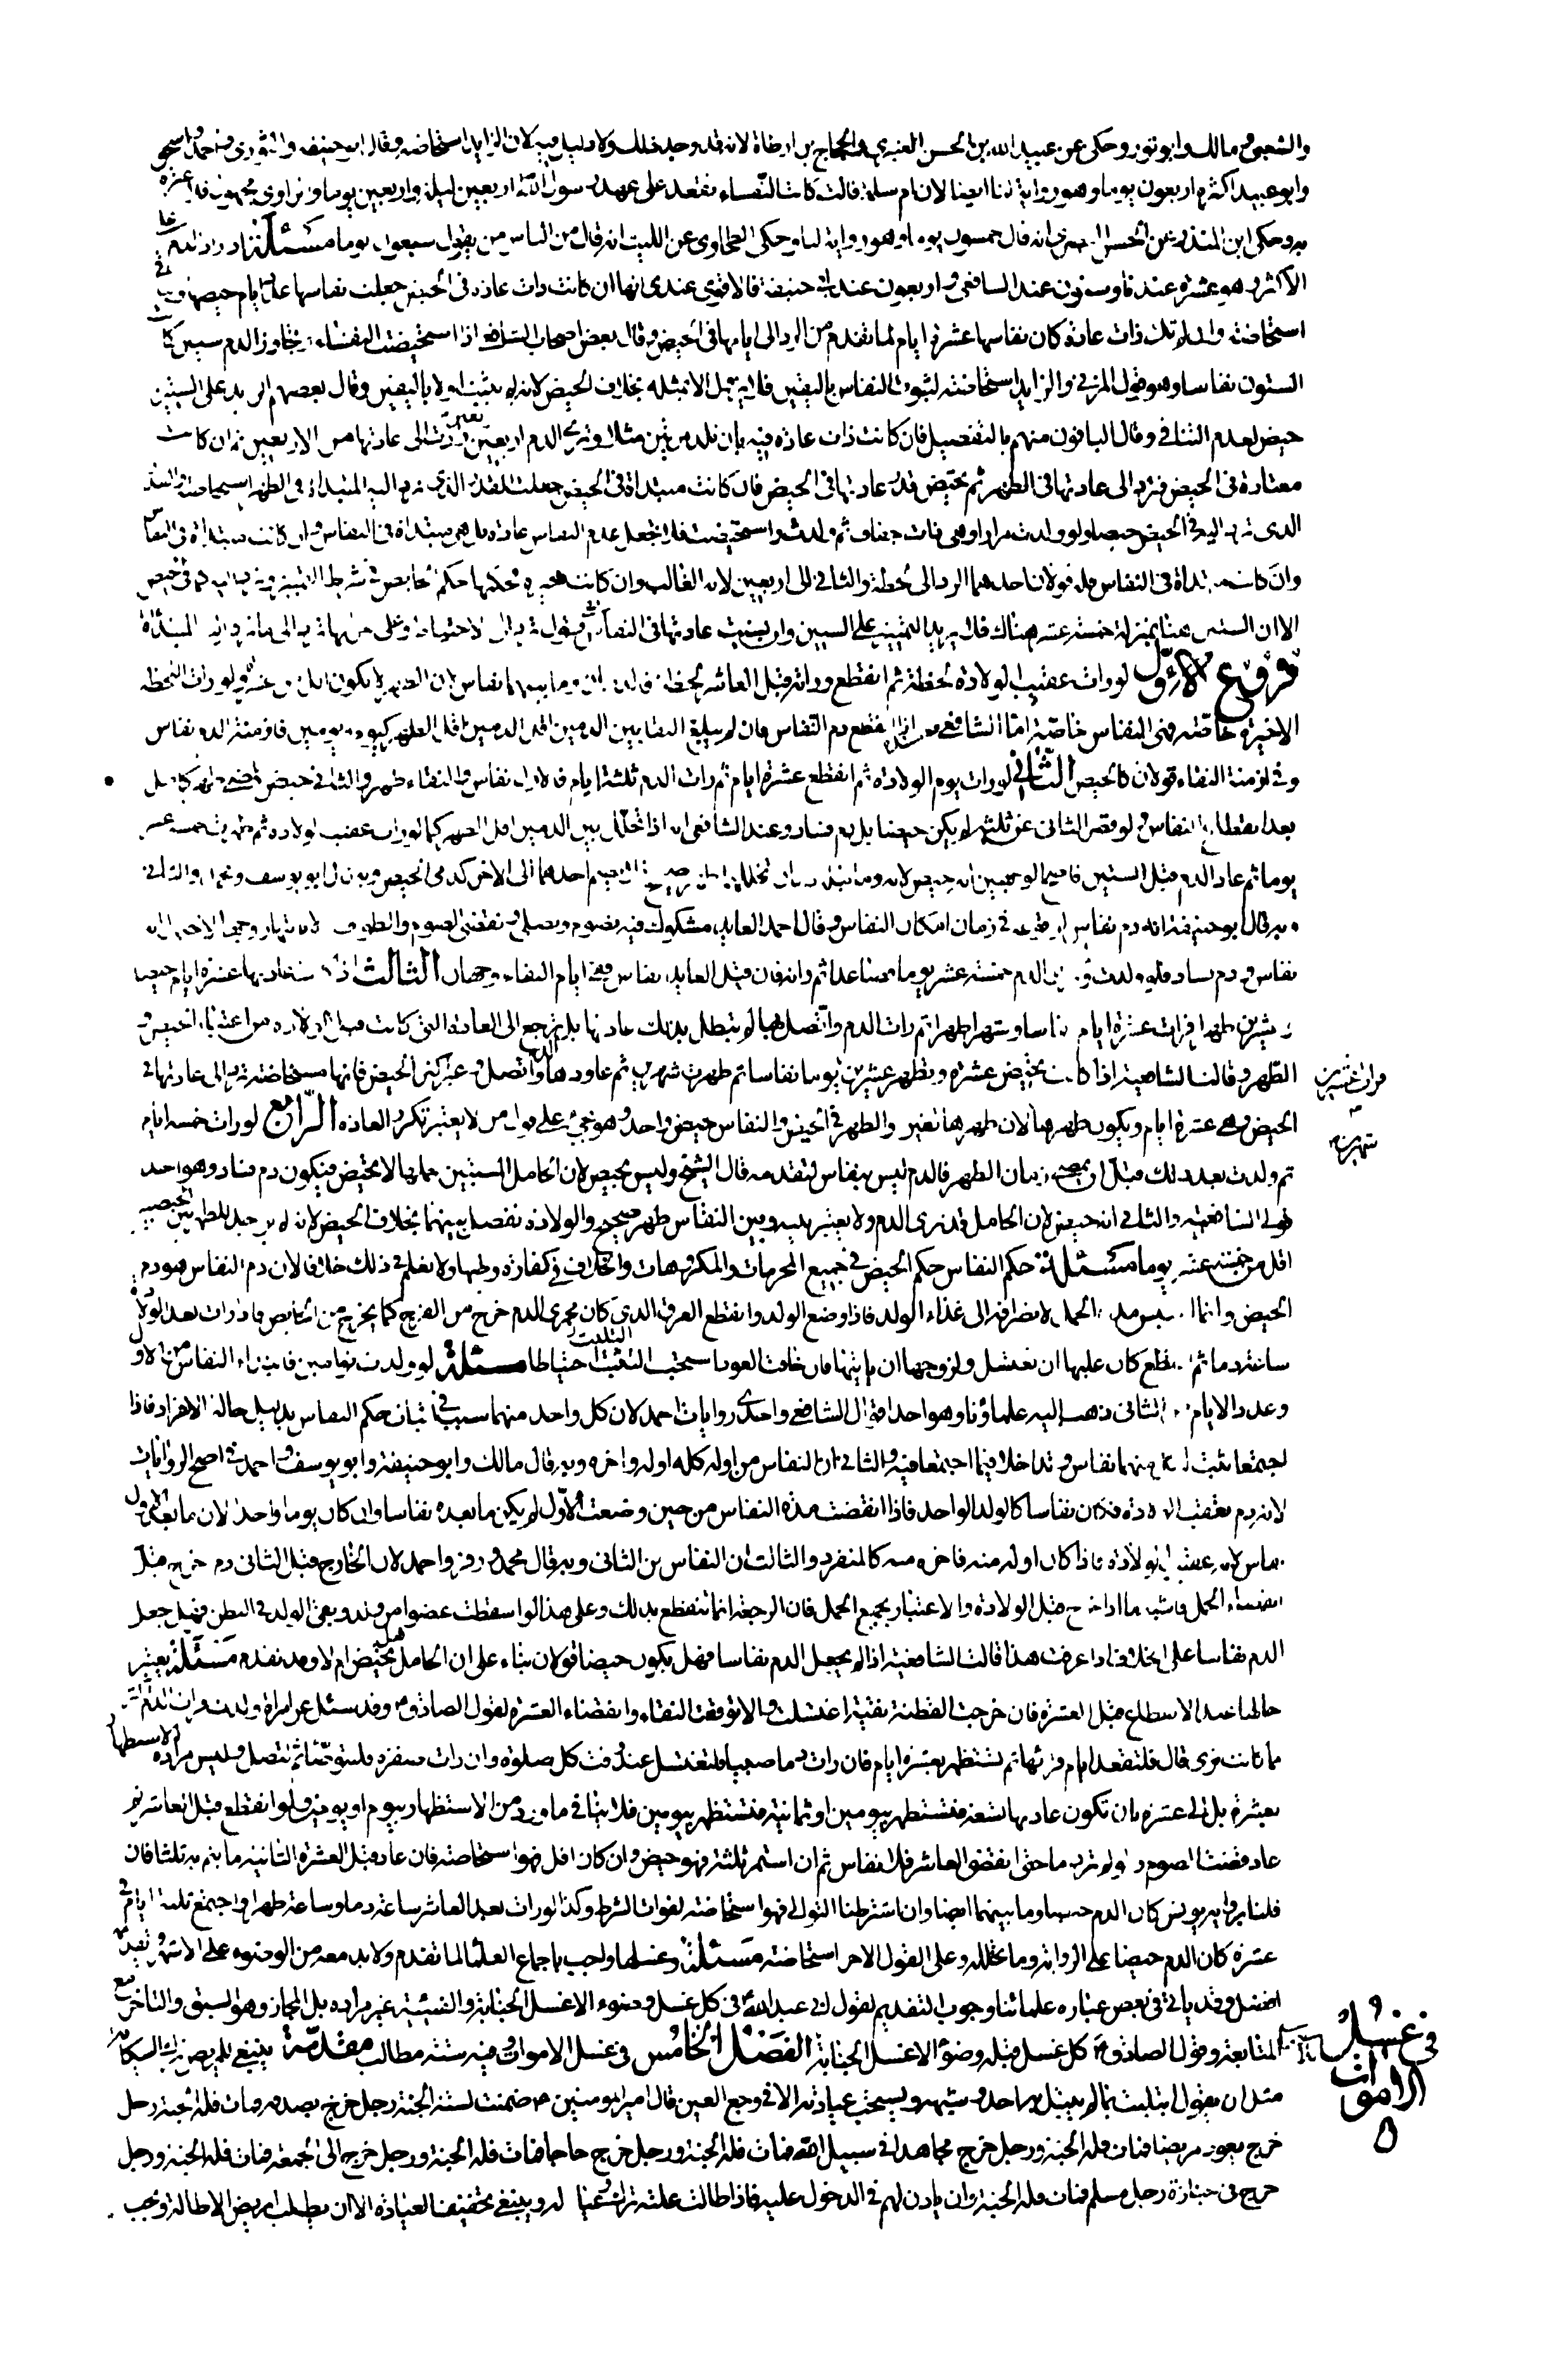 والشعبي ومالك وابو ثور وحكى عن عبيد الله بن الحسن العنبري والحجاج بن ارطاة لانه قد وجد ذلك ولا دليل فيه لان الزايد استحاضة وقال ابو حنيفة والثوري واحمد واسحق
وابو عبيد اكثره اربعون يوما وهو رواية لنا ايضا لان ام سلمة قالت كانت النفساء تقعد على عهد رسول الله اربعين ليلة واربعين يوما وراوي مجهول فلا عبرة
به وحكى ابن المنذر عن الحسن البصري انه قال خمسون يوما وهو رواية لنا وحكى الطحاوي عن الليث انه قال من الناس من يقول سبعون يوما مسئلة اذا زاد الدم على
الاكثر وهو عشرة عندنا وستون عند الشافعي واربعون عند ابي حنيفة فالاقوى عندي انها ان كانت ذات عادة في الحيض جعلت نفاسها عدد ايام حيضها والباقي
استحاضة وان لم تك ذات عادة كان نفاسها عشرة ايام لما تقدم من الرد الى ايامها في الحيض وقال بعض اصحاب الشافعي اذا استحيضت النفساء وتجاوز الدم ستين كان
الستون نفاسا وهو قول المزني والزايد استحاضة لثبوت النفاس باليقين فلا يزول الا بمثله بخلاف الحيض لانه لم يثبت اولا باليقين وقال بعضهم الزايد على الستين
حيض لعدم التنافي وقال الباقون منهم بالتفصيل فان كانت ذات عادة فيه بان تلد مرتين مثلا وترى الدم اربعين اربعين ردت الى عادتها من الاربعين ثم ان كانت
معتادة في الحيض فترد الى عادتها في الطهر ثم تحيض قدر عادتها في الحيض فان كانت مبتداة في الحيض جعلت القدر الذي ترد اليه المبتداة في الطهر استحاضة والقدر
الذي ترد اليه في الحيض حيضا ولو ولدت مرارا وهي ذات جفاف ثم ولدت واستحيضت فلا نجعل عدم النفاس عادة بل هي مبتداة في النفاس وان كانت مبتداة في النفاس
وان كانت مبتداة في النفاس فله قولان احدهما الرد الى لحظة والثاني الى اربعين لانه الغالب وان كانت مميزة فحكمها حكم الحايض في شرط التميز وترد اليه كما في الحيض
الا ان الستين هنا بمنزلة خمسة عشر هناك فلا يزيد التميز على الستين وان نسيت عادتها في النفاس ففي قول ترد الى الاحتياط وعلى قول الى ما ترد اليه المبتداة
فروع الاول لو رات عقيب الولادة لحظة ثم انقطع وراته قبل العاشر لحظة فالدمان وما بينهما نفاس لان الطهر لا يكون اقل من عشرة ولو رات اللحظة
الاخيرة خاصة فهي النفاس خاصة اما الشافعي اذا انقطع دم النفاس فان لم يبلغ النقا بين الدمين اقل الطهر كيوم ويومين فازمنة الدم نفاس
وفي ازمنة النقاء قولان كالحيض الثاني لو رات يوم الولادة ثم انقطع عشرة ايام ثم رات الدم ثلثة ايام فالاول نفاس والنقاء طهر والثاني حيض
بعد انقطاع النفاس ولو قصر الثاني عن ثلثة لم يكن حيضا بل دم فساد وعند الشافعي انه اذا تخلل بين الدمين اقل الطهر كما لو رات عقيب الولادة ثم طهرت خمسة عشر
يوما ثم عاد الدم قبل الستين فاصح الوجهين انه حيض لانه دمان تخللهما طهر صحيح فلا يضم احدهما الى الاخر كدمي الحيض وبه قال ابو يوسف ومحمد والثاني
وبه قال ابو حنيفة انه دم نفاس لوقوعه في زمان امكان النفاس وقال احمد العايد مشكوك فيه تصوم وتصلي وتقضي الصوم والطواف
نفاس ودم فساد فلو ولدت ولم تر الدم خمسة عشر يوما فصاعدا ثم راته فان قيل العايد نفاس ففي ايام النقاء وجهان الثالث اذا كانت عادتها عشرة ايام حيضا
وعشرين طهرا فرات عشرة ايام نفاسا وشهرا طهرا ثم رات الدم واتصل بها لم تبطل بذلك عادتها بل ترجع الى العادة التي كانت قبل الولادة من اعتبار الحيض و
الطهر وقالت الشافعية اذا كانت تحيض عشرة وتطهر عشرين يوما نفاسا ثم طهرت شهرين ثم عاودها الدم واتصل وعبر اكثر الحيض فانها مستحاضة ترد الى عادتها في
فرات عشرين
شهرين
الحيض وهي عشرة ايام ويكون طهرهما لان طهرها تغير والطهر في الحيض والنفاس حيض واحد وهو يجيء على قول من لا يعتبر تكرر العادة الرابع لو رات خمسة ايام
ثم ولدت بعد ذلك قبل ان يمضي زمان الطهر فالدم ليس بنفاس لتقدمه قال الشيخ وليس بحيض لان الحامل المستبين حملها لا تحيض فيكون دم فساد وهو احد
قولي الشافعية والثاني انه حيض لان الحامل قد ترى الدم ولا يعتبر بينه وبين النفاس طهر صحيح والولادة تفصل بينهما بخلاف الحيض لانه لم يوجد للطهر بين الحيضتين
اقل من خمسة عشر يوما مسئلة حكم النفاس حكم الحيض في جميع المحرمات والمكروهات والخلاف في كفارة وطيها ولا نعلم في ذلك خلافا لان دم النفاس هو دم
الحيض وانما احتبس مدة الحمل لانصرافه الى غذاء الولد فاذا وضع الولد وانقطع العرق الذي كان مجرى الدم خرج من الفرج كما يخرج من الحايض فاذا رات بعد الولادة
ساعة دما ثم انقطع كان عليها ان تغتسل ولزوجها ان ياتيها فان خافت العود استحب التثبت احتياطا مسئلة لو ولدت توامين فابتداء النفاس من الاول
وعدد الايام من الثاني ذهب اليه علماؤنا وهو احد اقوال الشافعي واحدى روايات احمد لان كل واحد منهما سبب في اثبات حكم النفاس بدليل حالة الانفراد فاذا
اجتمعا ثبت لكل منهما نفاس وتداخلا فيما اجتمعا فيه والثاني ان النفاس من اوله كله اوله واخره وبه قال مالك وابو حنيفة وابو يوسف واحمد في اصح الروايات
لانه دم تعقب الولادة فكان نفاسا كالولد الواحد فاذا انقضت مدة النفاس من حين وضعت الاول لم يكن ما بعده نفاسا وان كان يوما واحدا لان ما بعد الاول
نفاس لانه عقيب الولادة فاذا كان اوله منه فاخره منه كالمنفرد والثالث ان النفاس من الثاني وبه قال محمد وزفر واحمد لان الخارج قبل الثاني دم خرج قبل
انقضاء الحمل فاشبه ما اذا خرج قبل الولادة والاعتبار بجميع الحمل فان الرجعة انما تنقطع بذلك وعلى هذا لو اسقطت عضوا من ولد وبقي الولد في البطن فهل جعل
الدم نفاسا على الخلاف اذا عرفت هذا قالت الشافعية اذا لم يجعل الدم نفاسا فهل يكون حيضا قولان بناء على ان الحامل هل تحيض ام لا وقد تقدم مسئلة يعتبر
حالها عند الانقطاع قبل العشرة فان خرجت القطنة نقية اغتسلت والا توقعت النقاء وانقضاء العشرة لقول الصادق ع وقد سئل عن امراة ولدت فرات الدم اكثر
مما كانت ترى قال فلتقعد ايام قرئها ثم تستظهر بعشرة ايام فان رات دما صبيبا فلتغتسل عند وقت كل صلوة وان رات صفرة فلتتوضا ثم لتصل وليس مراده الاستظهار
بعشرة بل الى عشرة بان تكون عادتها تسعة فتستظهر بيومين او ثمانية فتستظهر بيومين فلا ينافي ما ورد من الاستظهار بيوم او يومين ولو انقطع قبل العاشر ثم
عاد قضت الصوم ولو لم تره ما حتى انقضى العاشر فلا نفاس ثم ان استمر ثلثة فهو حيض وان كان اقل فهو استحاضة فان عاد قبل العشرة الثانية ما يتم به ثلثا فان
قلنا برواية يونس كان الدم حيضا وما بينهما ايضا وان اشترطنا التوالي فهو استحاضة لفوات الشرط وكذا لو رات بعد العاشر ساعة دما وساعة طهرا واجتمع ثلثة ايام في
عشرة كان الدم حيضا على الرواية وما تخلله وعلى القول الاخر استحاضة مسئلة وغسلها واجب باجماع العلماء لما تقدم ولا بد معه من الوضوء على الاشهر وتقديمه
افضل وقد ياتي في بعض عباره علمائنا وجوب التقديم لقول ابي عبد الله ع في كل غسل وضوء الا غسل الجنابة والفيئية غير مراده بل المجاز وهو السبق والتاخر مع
المتابعة وقول الصادق ع كل غسل قبله وضوء الا غسل الجنابة الفصل الخامس في غسل الاموات وفيه ستة مطالب مقدمة ينبغي للمريض ترك الشكاية
في غسل
الاموات
مثل ان يقول ابتليت بما لم يبتل به احد وشبهه ويستحب عيادته الا في وجع العين قال امير المؤمنين ع ضمنت لستة الجنة رجل خرج بصدقة فمات فله الجنة ورجل
خرج يعود مريضا فمات فله الجنة ورجل خرج مجاهدا في سبيل الله فمات فله الجنة ورجل خرج حاجا فمات فله الجنة ورجل خرج الى الجمعة فمات فله الجنة ورجل
خرج في جنازة رجل مسلم فمات فله الجنة وان ياذن لهم في الدخول عليه فاذا طالت علته ترك وعياله وينبغي تخفيف العيادة الا ان يطلب المريض الاطالة وتجب